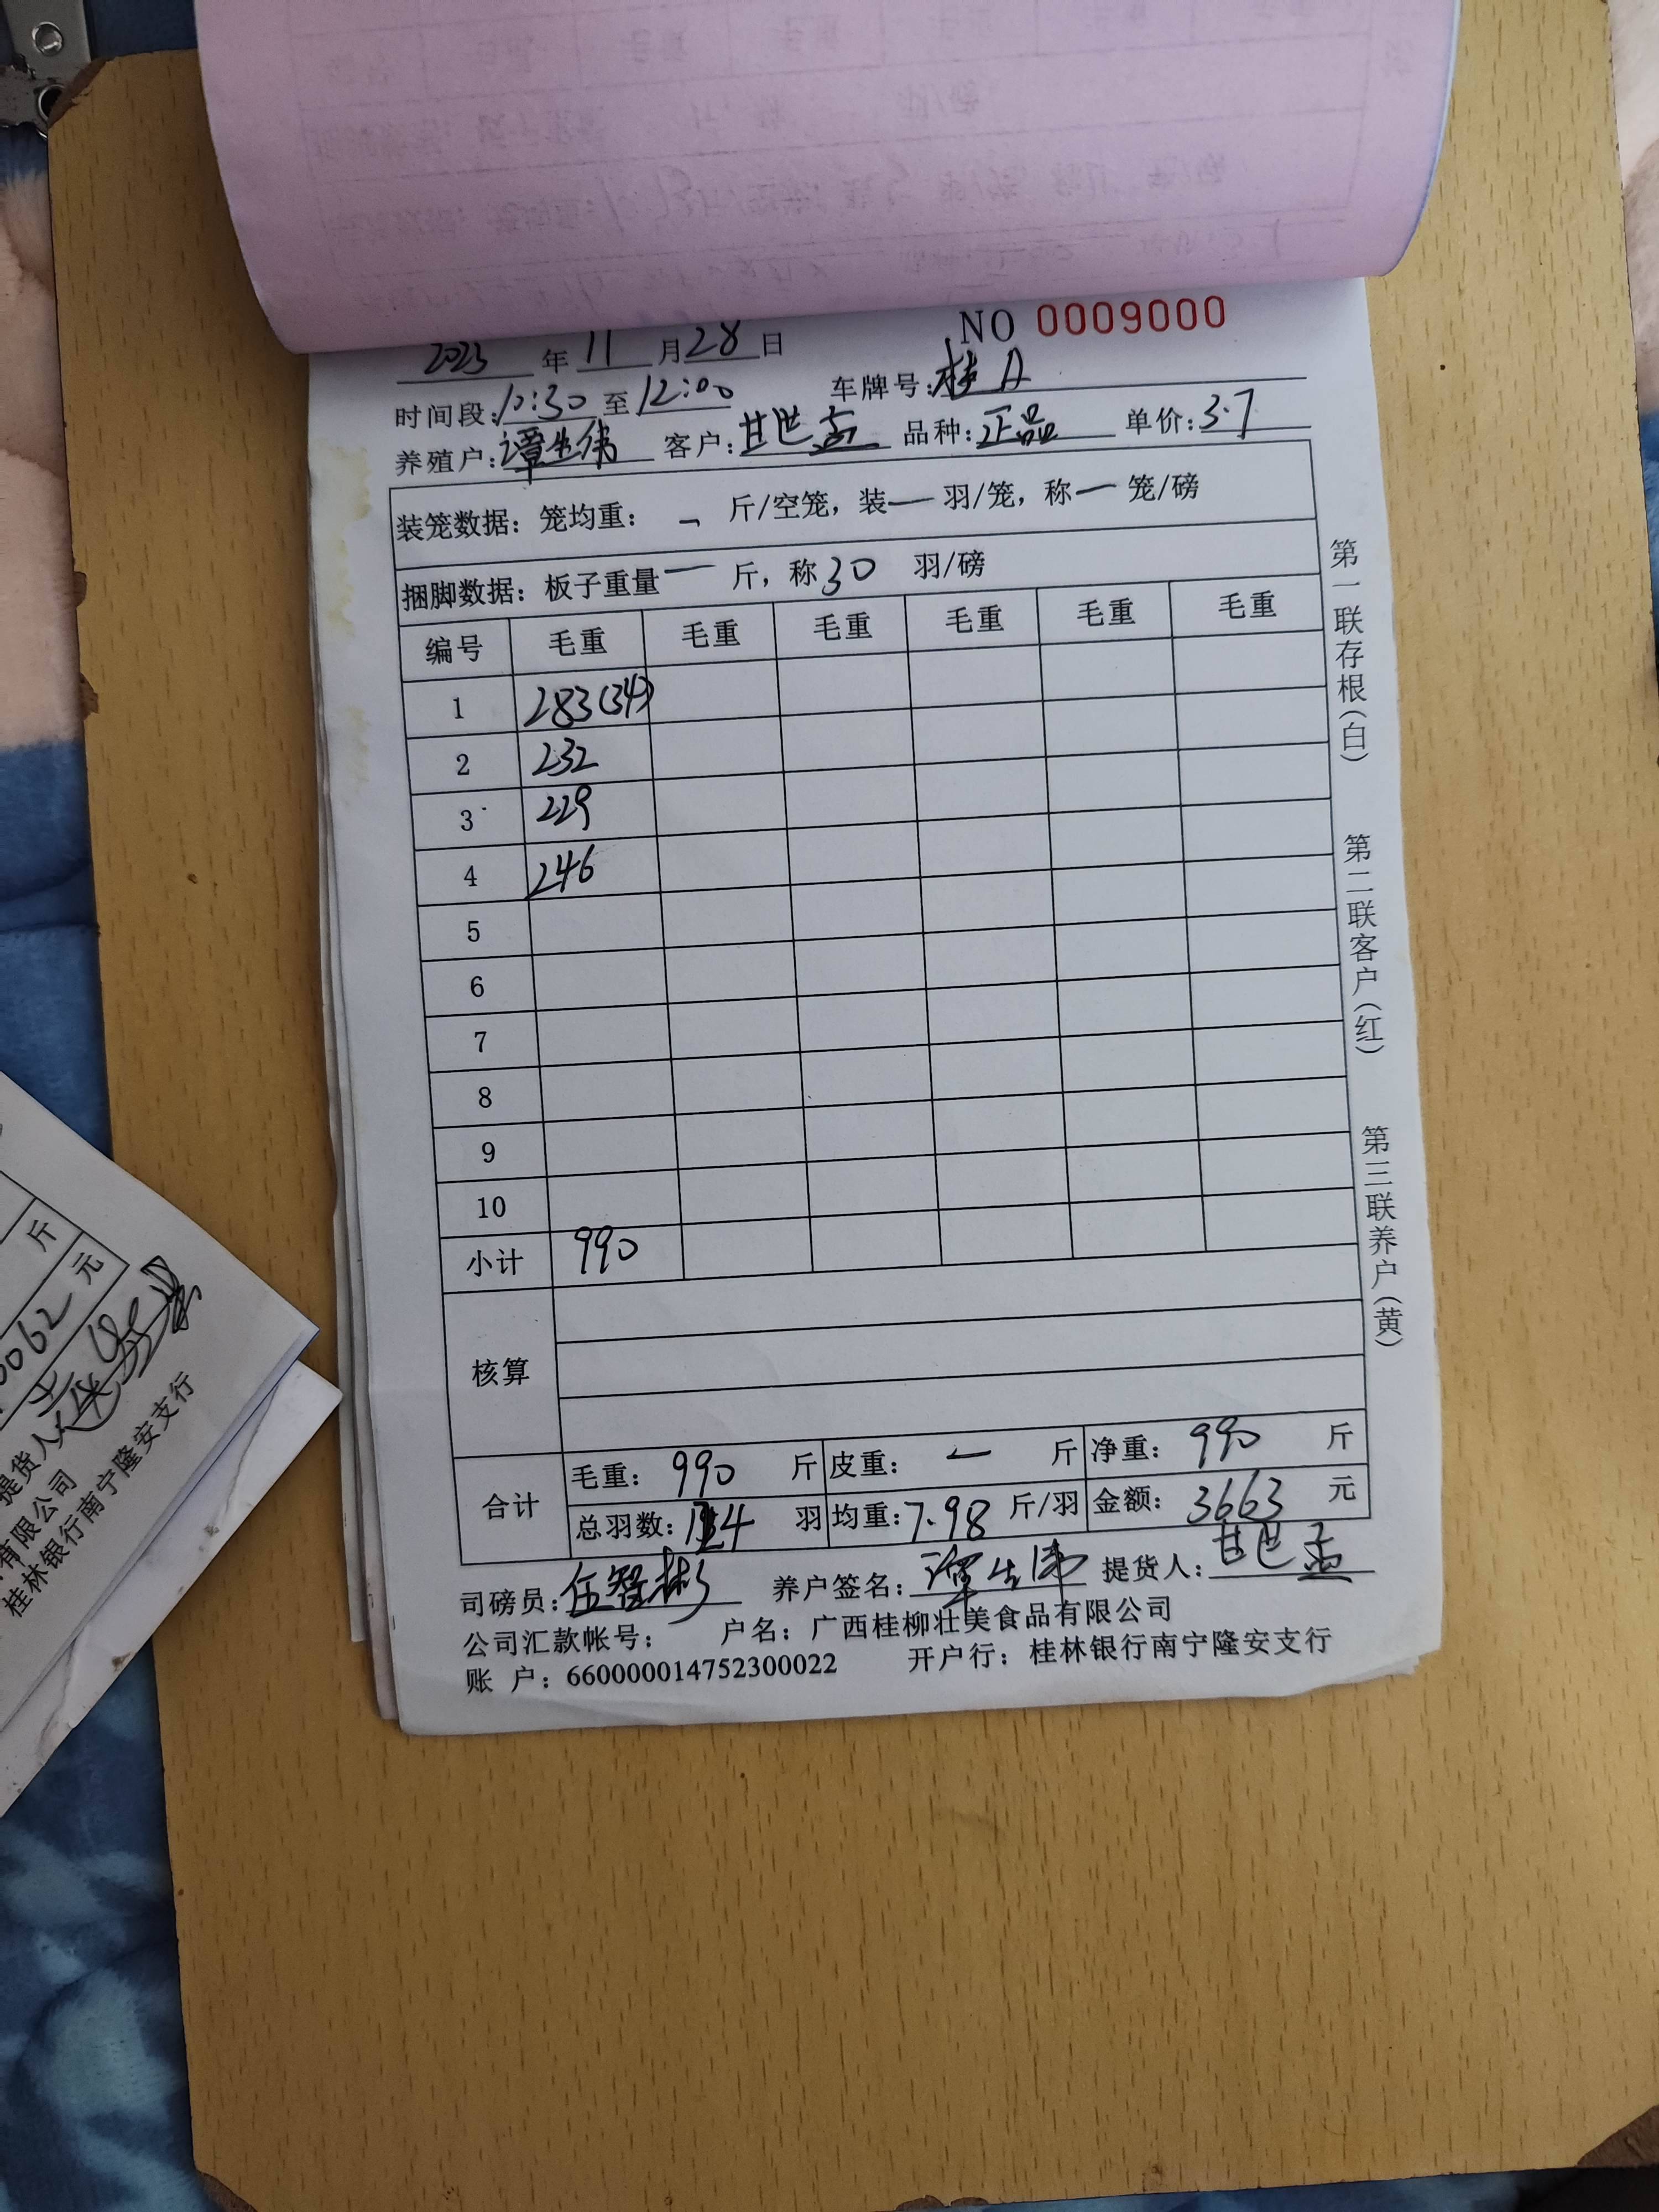 NO 0009000
2023 年 11 月 28 日
时间段: 10:30 至 12:00 车牌号: 桂A
养殖户: 谭生伟 客户: 甘世孟 品种: 正品 单价: 3.7
装笼数据: 笼均重: — 斤/空笼, 装 — 羽/笼, 称 — 笼/磅
捆脚数据: 板子重量 — 斤, 称 30 羽/磅
编号 毛重 毛重 毛重 毛重 毛重 毛重
1 283(34)
2 232
3 229
4 246
5
6
7
8
9
10
小计 990
核算
合计 毛重: 990 斤 皮重: — 斤 净重: 990 斤
总羽数: 124 羽 均重: 7.98 斤/羽 金额: 3663 元
司磅员: 伍智彬 养户签名: 谭生伟 提货人: 甘世孟
公司汇款帐号: 户名: 广西桂柳壮美食品有限公司
账 户: 660000014752300022 开户行: 桂林银行南宁隆安支行
第一联存根(白) 第二联客户(红) 第三联养户(黄)
斤
0062 元
提货人
有限公司
桂林银行南宁隆安支行